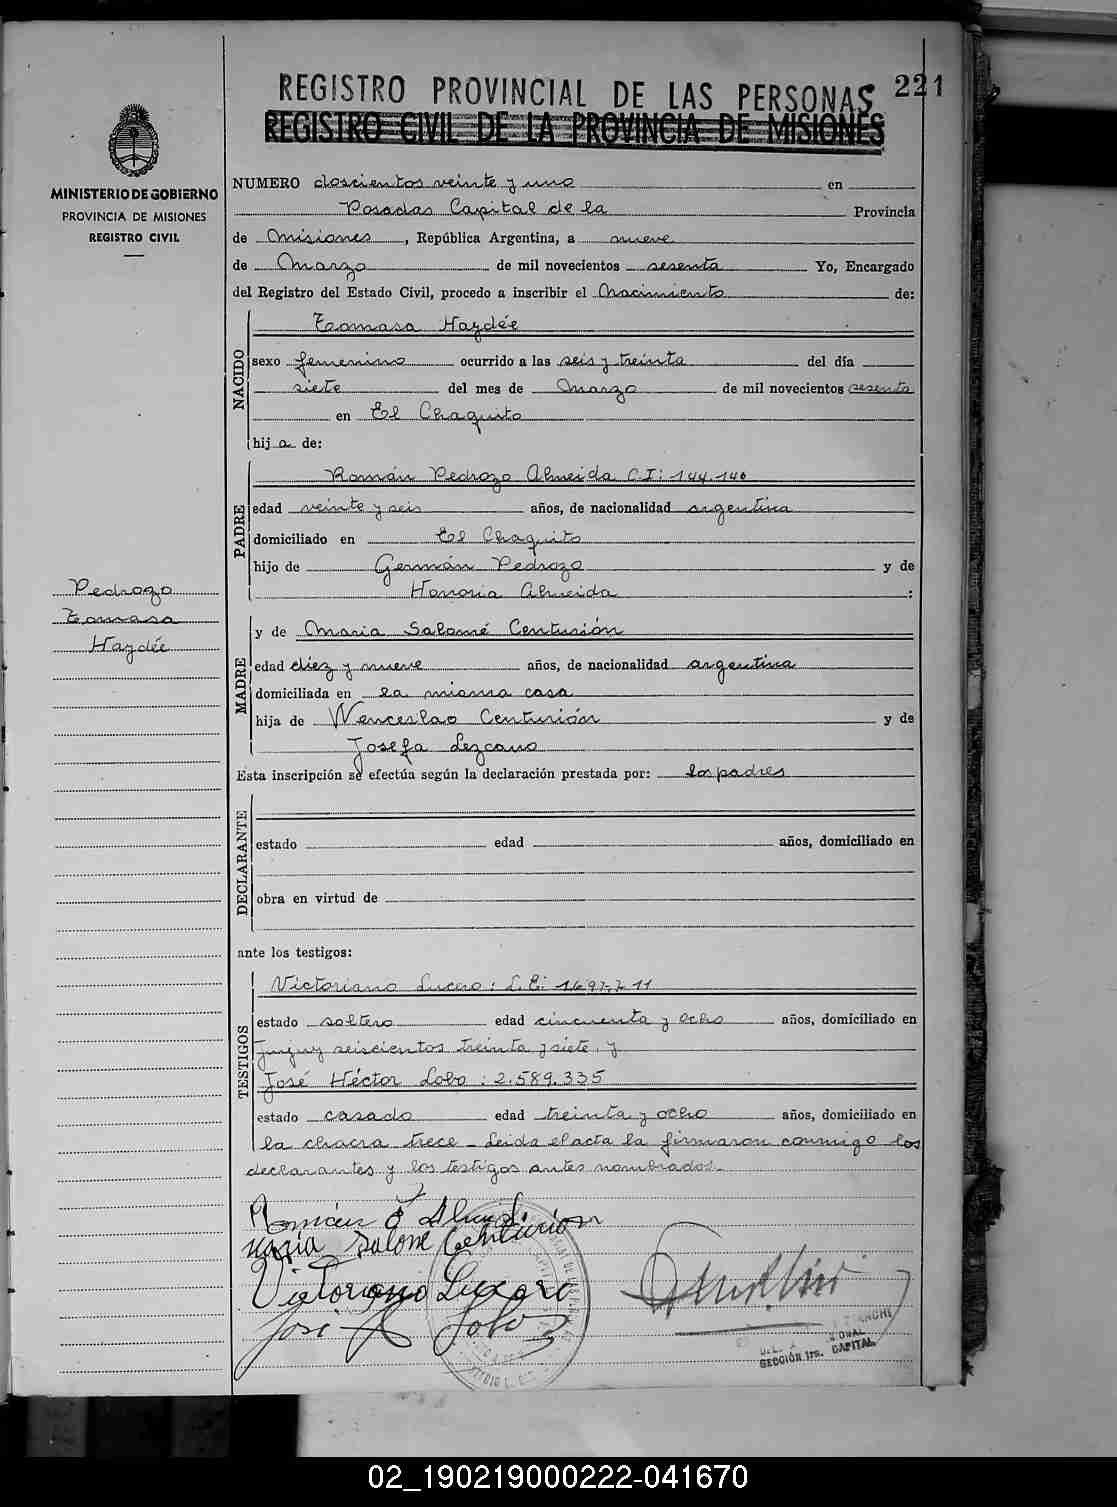 REGISTRO PROVINCIAL DE LAS PERSONAS 221
REGISTRO CIVIL DE LA PROVINCIA DE MISIONES
MINISTERIO DE GOBIERNO
PROVINCIA DE MISIONES
REGISTRO CIVIL
NUMERO doscientos veinte y uno en
Posadas Capital de la Provincia
de Misiones, República Argentina, a nueve
de Marzo de mil novecientos sesenta Yo, Encargado
del Registro del Estado Civil, procedo a inscribir el Nacimiento de:
NACIDO
Tomasa Haydée
sexo femenino ocurrido a las seis y treinta del día
siete del mes de Marzo de mil novecientos sesenta
en El Chaquito
hija de:
PADRE
Román Pedrozo Almeida C.I: 144.140
edad veinte y seis años, de nacionalidad argentina
domiciliado en El Chaquito
hijo de Germán Pedrozo y de
Honoria Almeida :
Pedrozo
Tomasa
Haydée
MADRE
y de Maria Salomé Centurión
edad diez y nueve años, de nacionalidad argentina
domiciliada en la misma casa
hija de Wenceslao Centurión y de
Josefa Lezcano
Esta inscripción se efectúa según la declaración prestada por: los padres
DECLARANTE
estado edad años, domiciliado en
obra en virtud de
ante los testigos:
TESTIGOS
Victoriano Lucero: L.E:
estado soltero edad cincuenta y ocho años, domiciliado en
Jujuy seiscientos treinta y siete, y
José Héctor Lobo: 2.589.335
estado casado edad treinta y ocho años, domiciliado en
la chacra trece - Leida el acta la firmaron conmigo los
declarantes y los testigos antes nombrados.-
Román
Maria Salome Centurion
Victoriano Lucero
José Lobo
SECCIÓN 1ra. CAPITAL
02_190219000222-041670